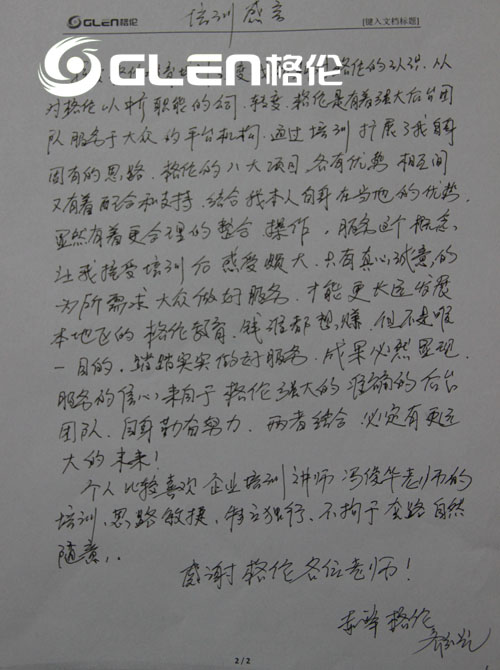 GLEN格伦 [键入文档标题]
培训感言
GLEN格伦
格伦的认识.从
对格伦以 职能的 转变.格伦是有着强大后台团
队服务于大众的平台机构.通过培训扩展了我自身
固有的思路.格伦的八大项目各有优势相互间
又有着配合和支持.结合我本人自身在当地的优势.
显然有着更合理的整合操作.服务这个概念,
让我接受培训后感受颇大.只有真心诚意的
为所需求大众做好服务.才能更长远发展
本地区的格伦教育.钱谁都想赚.但不是唯
一目的.踏踏实实做好服务.成果必然显现.
服务的信心来自于格伦强大的准确的后台
团队.自身勤奋努力.两者结合必定有更远
大的未来!
个人比较喜欢企业培训讲师冯俊华老师的
培训.思路敏捷,特立独行,不拘于套路自然
随意.
感谢格伦各位老师!
赤峰格伦
2 / 2